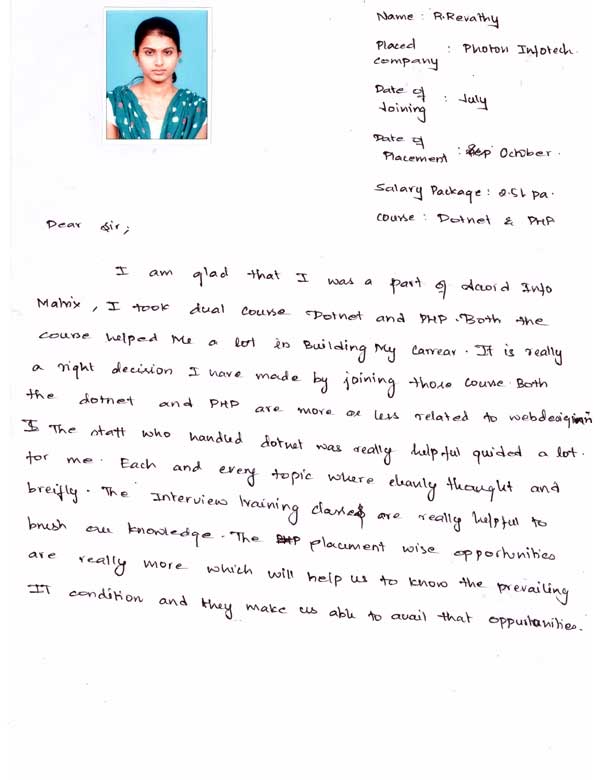 Name : R.Revathy
Placed company : Photon Infotech
Date of Joining : July
Date of Placement : Sep October.
Salary Package : 2.5L pa.
Course : Dotnet & PHP
Dear Sir,
I am glad that I was a part of dcord Info
Matrix, I took dual course Dotnet and PHP. Both the
course helped me a lot in Building My carrear. It is really
a right decision I have made by joining those course. Both
the dotnet and PHP are more or less related to webdesignin
The staff who handled dotnet was really helpful guided a lot.
for me. Each and every topic where clearly thought and
breifly. The Interview training classes are really helpful to
brush our knowledge. The PHP placement wise opportunities
are really more which will help us to know the prevailing
IT condition and they make us able to avail that oppurtunities.